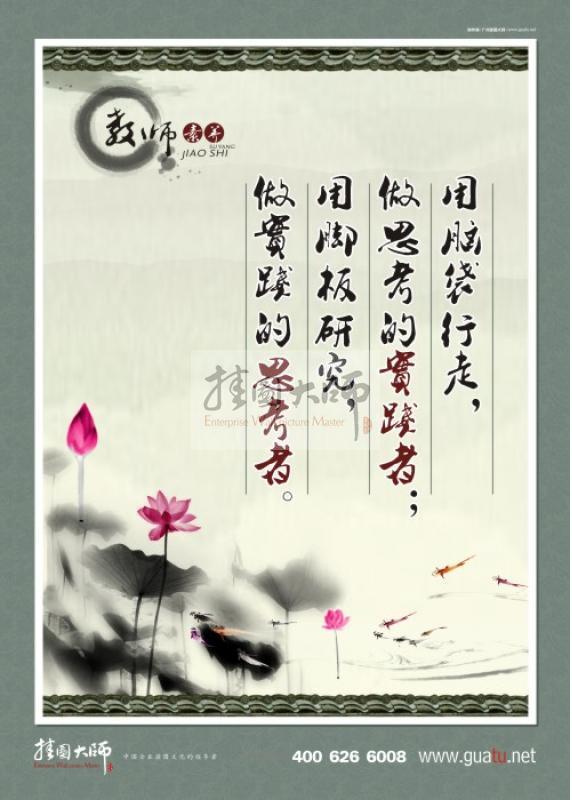 教师
素养
SU YANG
JIAO SHI
用脑袋行走，
做思考的實踐者；
用脚板研究，
做實踐的思考者。
挂图大师
Enterprise Wall Picture Master
挂图大师
Enterprise Wall Picture Master
中国企业挂图文化的领导者
400 626 6008
www.guatu.net